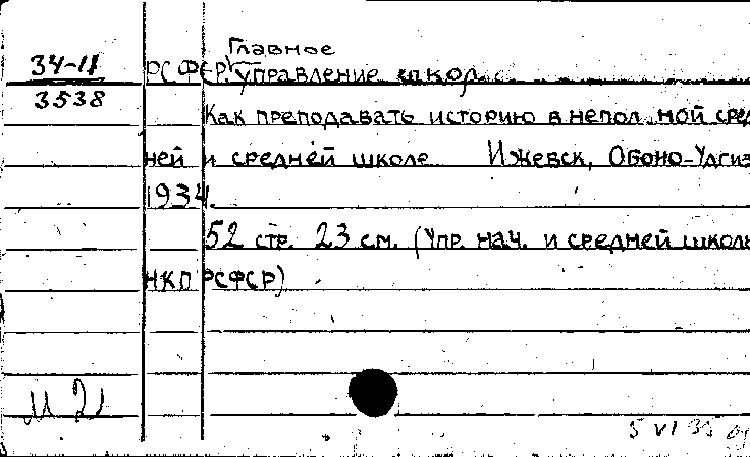 Главное
34-11 РСФСР. управление школ.
3538
Как преподавать историю в непол ной сред
ней и средней школе Ижевск, Обоно-Удгиз
1934.
52 стр. 23 см. (Упр. нач. и средней школы
НКП РСФСР)
М 21
5 VI 35